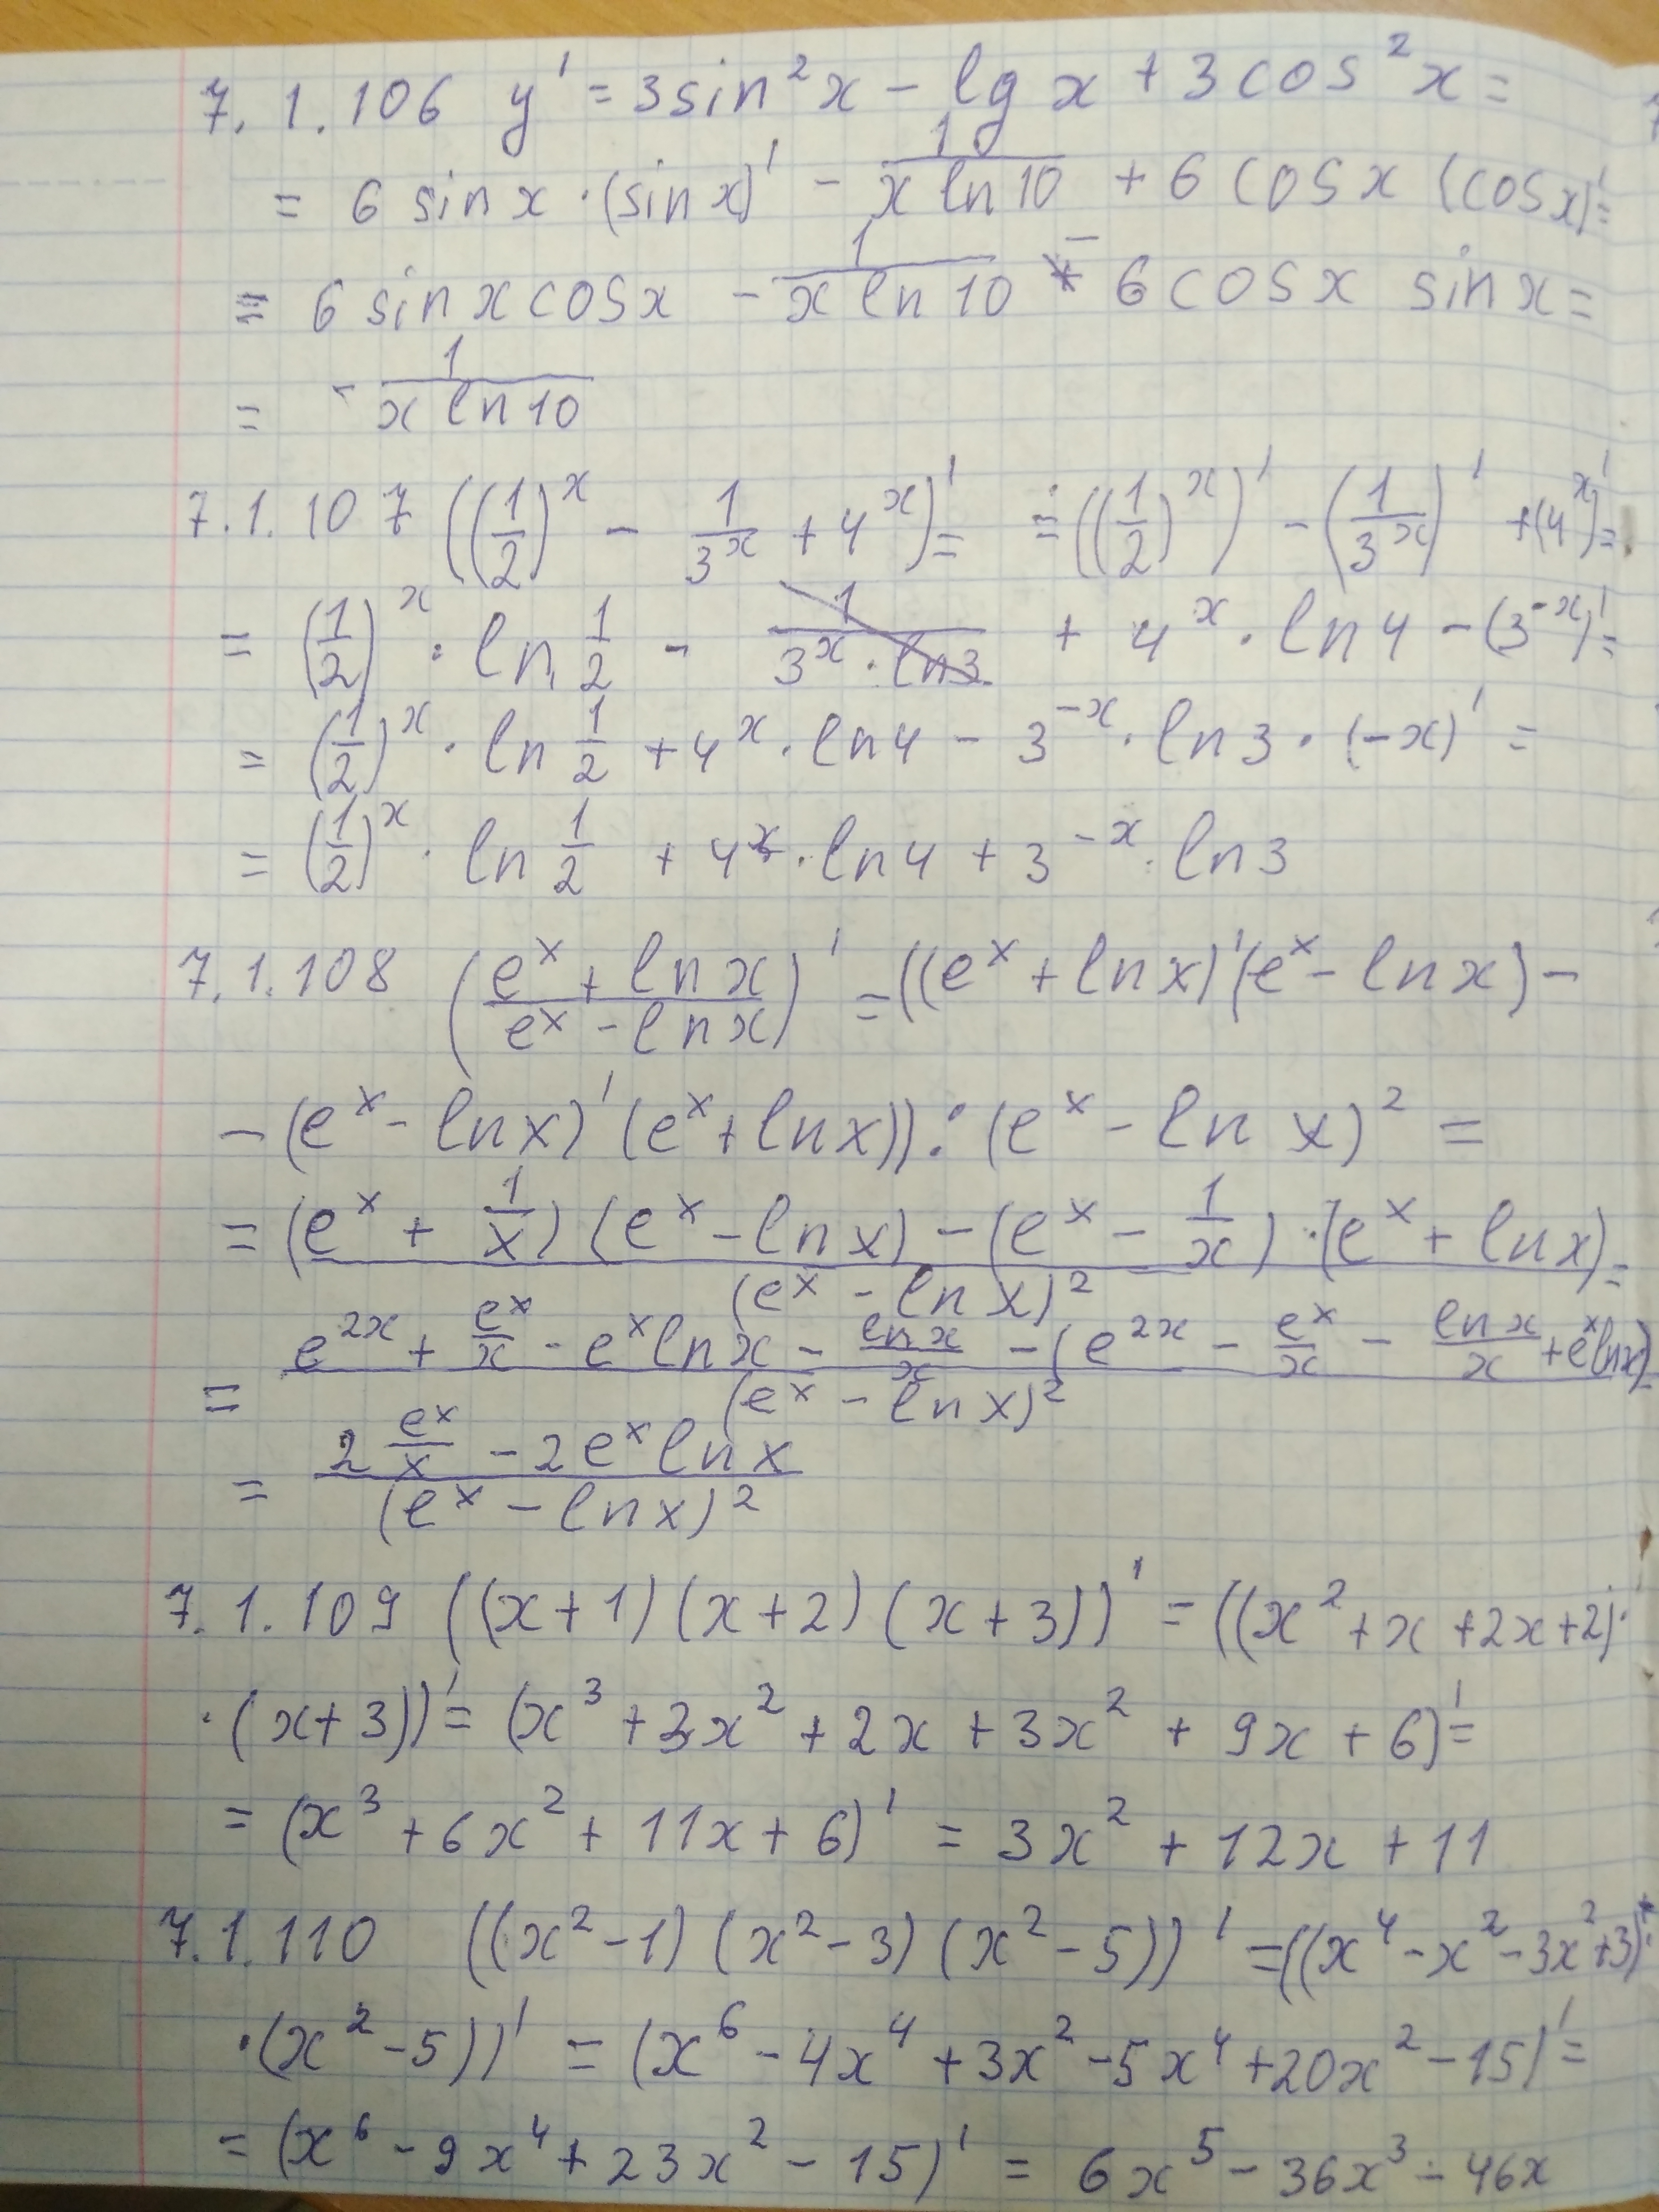 7.1.106 y' = 3sin²x − lg x + 3cos²x =
= 6 sin x · (sin x)' − 1/(x ln10) + 6 cos x (cos x)' =
= 6 sin x cos x − 1/(x ln10) − 6 cos x sin x =
= − 1/(x ln10)
7.1.107 ((1/2)^x − 1/3^x + 4^x)' = = ((1/2)^x)' − (1/3^x)' + (4^x)' =
= (1/2)^x · ln 1/2 − 1/(3^x · ln3) + 4^x · ln4 − (3^-x)' =
= (1/2)^x · ln 1/2 + 4^x · ln4 − 3^-x · ln3 · (−x)' =
= (1/2)^x · ln 1/2 + 4^x · ln4 + 3^-x · ln3
7.1.108 ((e^x + ln x)/(e^x − ln x))' = ((e^x + ln x)'(e^x − ln x) −
− (e^x − ln x)' (e^x + ln x)) : (e^x − ln x)² =
= ((e^x + 1/x)(e^x − ln x) − (e^x − 1/x) · (e^x + ln x))/(e^x − ln x)² =
= (e^2x + e^x/x − e^x ln x − ln x/x − (e^2x − e^x/x − ln x/x + e^x ln x))/(e^x − ln x)² =
= (2 e^x/x − 2e^x ln x)/(e^x − ln x)²
7.1.109 ((x+1)(x+2)(x+3))' = ((x² + x + 2x + 2) ·
· (x+3))' = (x³ + 3x² + 2x + 3x² + 9x + 6)' =
= (x³ + 6x² + 11x + 6)' = 3x² + 12x + 11
7.1.110 ((x² − 1)(x² − 3)(x² − 5))' = ((x⁴ − x² − 3x² + 3) ·
· (x² − 5))' = (x⁶ − 4x⁴ + 3x² − 5x⁴ + 20x² − 15)' =
= (x⁶ − 9x⁴ + 23x² − 15)' = 6x⁵ − 36x³ − 46x